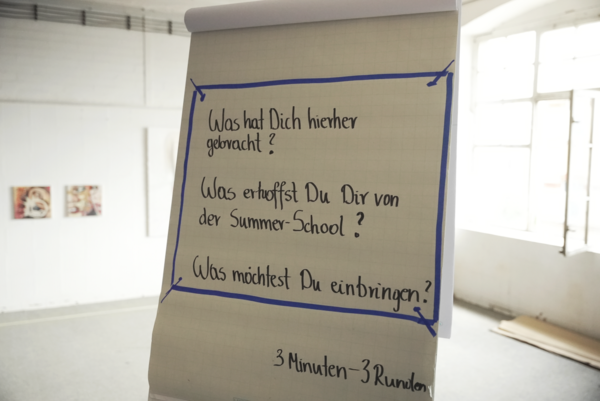 Was hat Dich hierher
gebracht?
Was erhoffst Du Dir von
der Summer-School?
Was möchtest Du einbringen?
3 Minuten-3 Runden